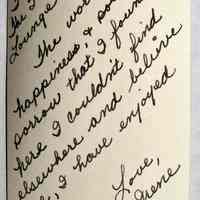 the
Lounge
The wo
happiness, & so
sorrow that I foun
here I couldn't find
elsewhere and believe
I have enjoyed
Love,
rene